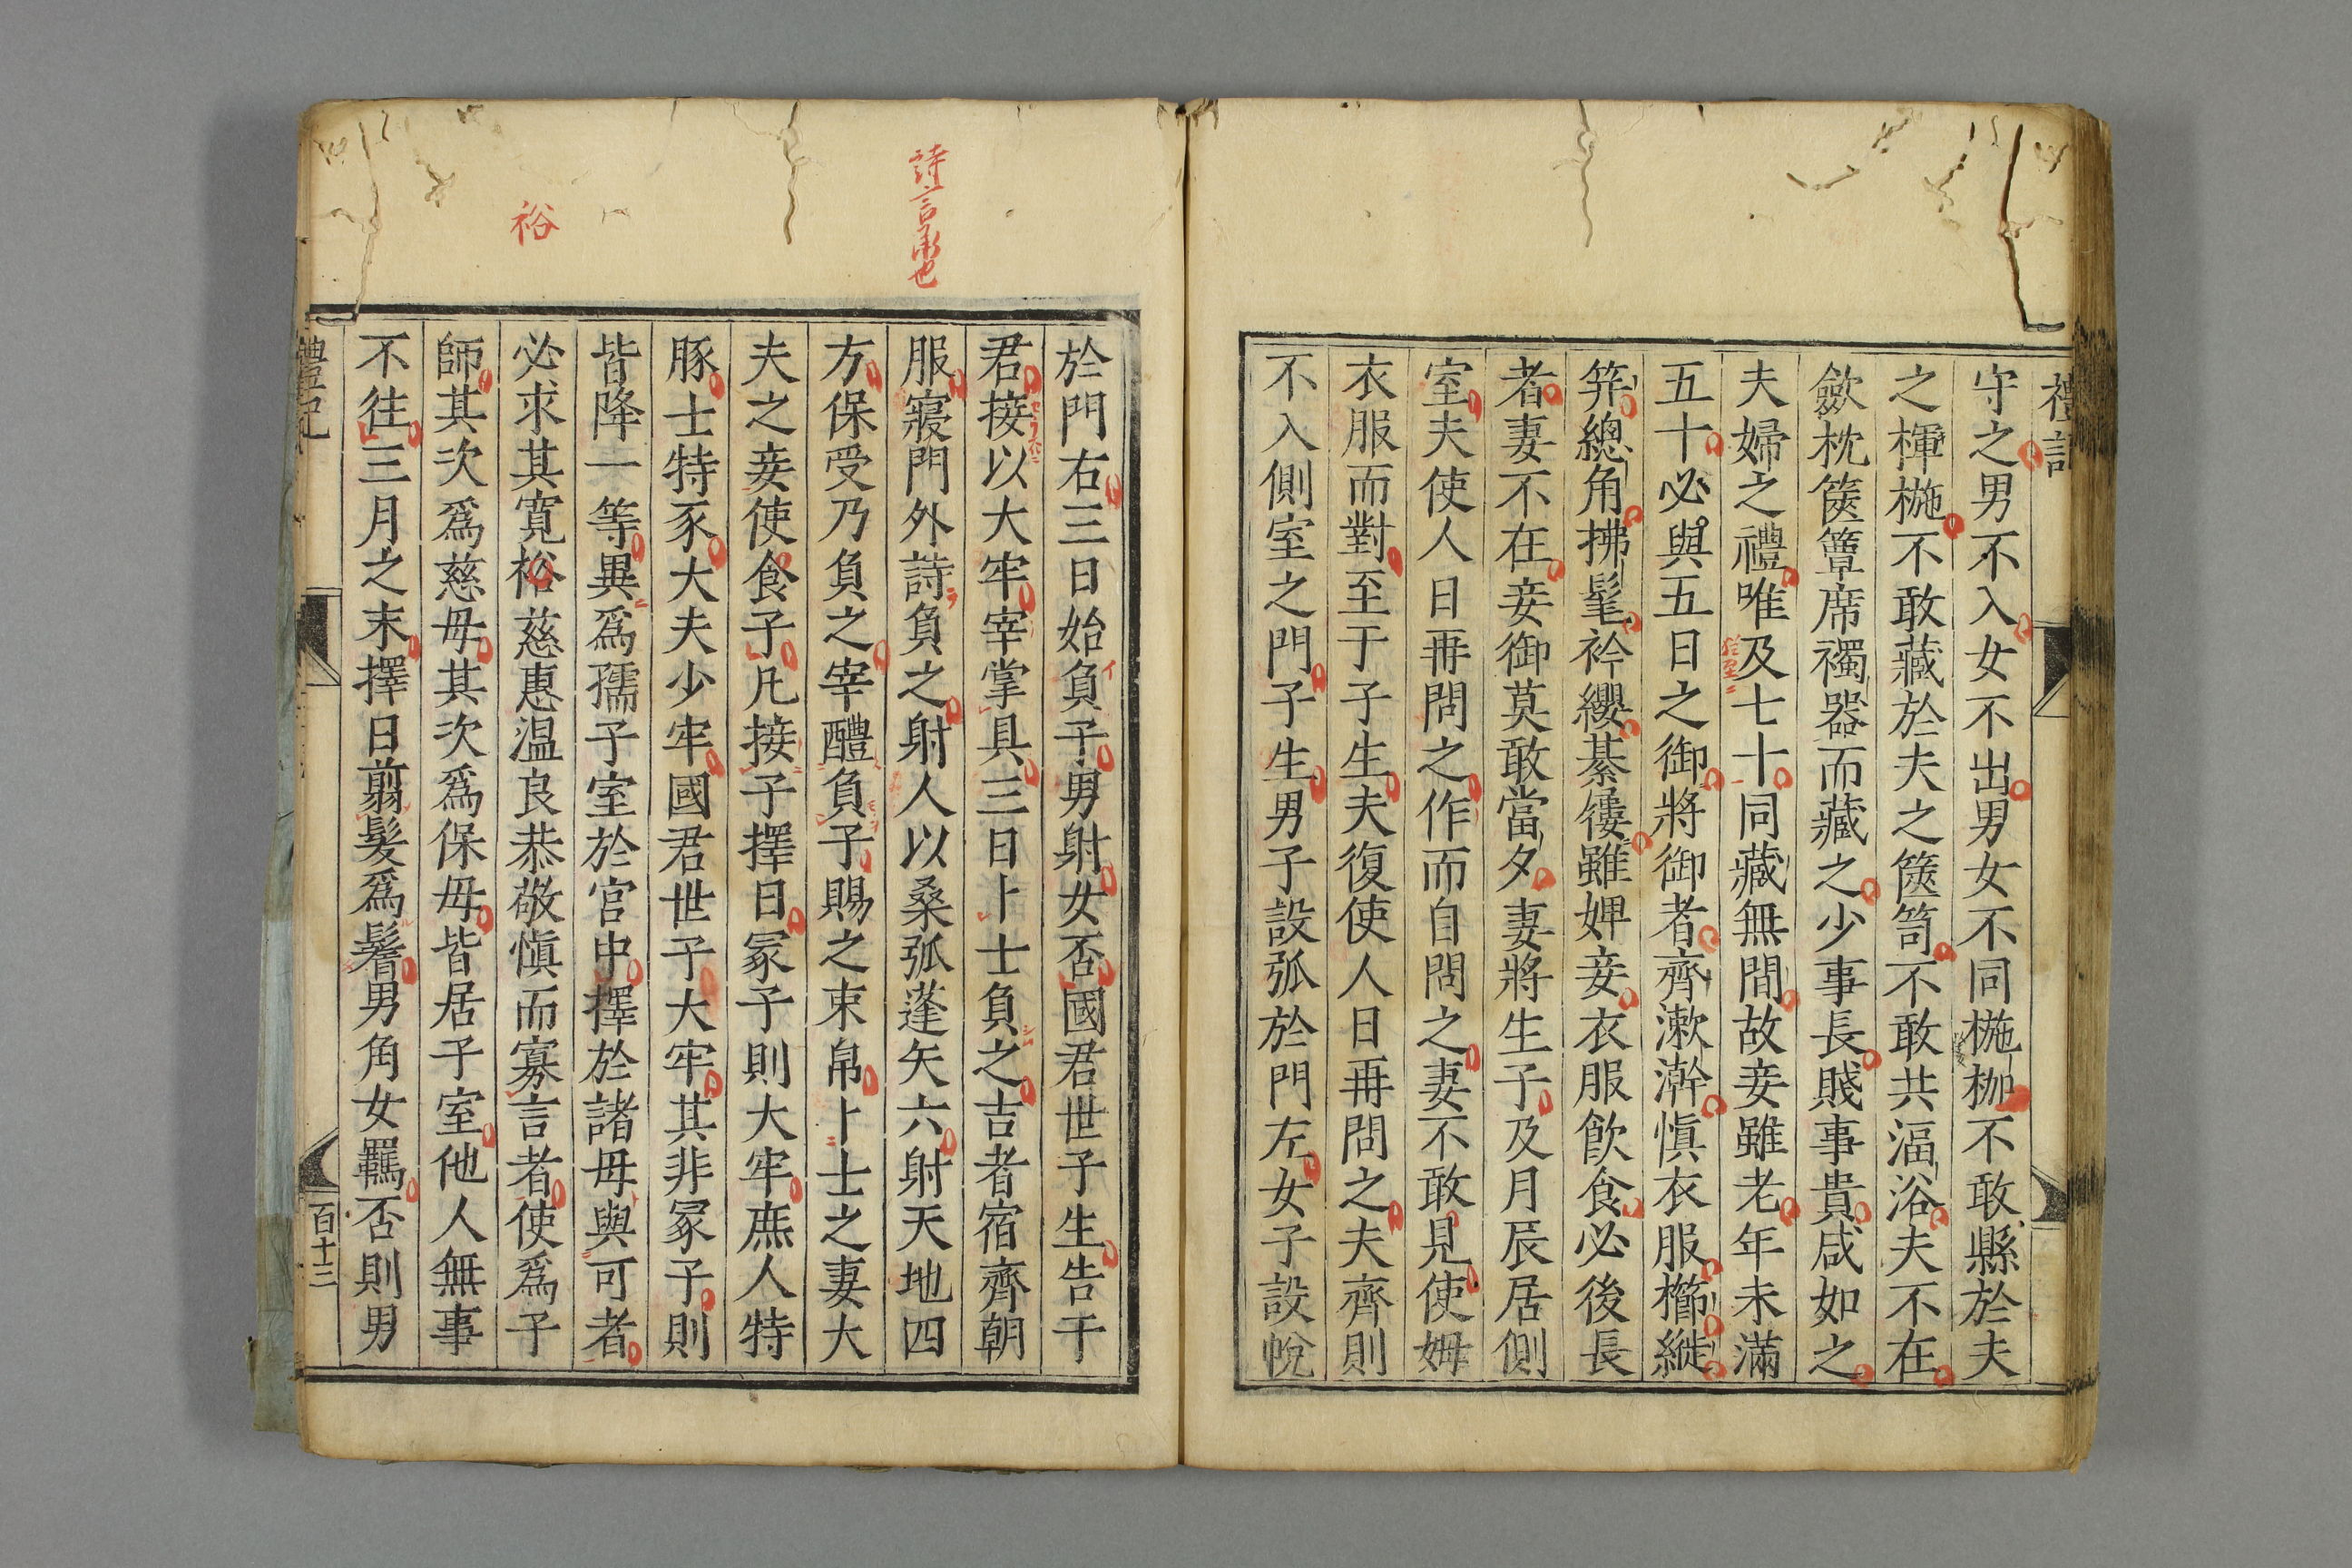 禮記
守之男不入女不出男女不同椸枷不敢縣於夫
之楎椸不敢藏於夫之篋笥不敢共湢浴夫不在
斂枕篋簟席襡器而藏之少事長賤事貴咸如之
夫婦之禮唯及七十同藏無間故妾雖老年未滿
五十必與五日之御將御者齊漱澣愼衣服櫛縰
笄總角拂髦衿纓綦屨雖婢妾衣服飮食必後長
者妻不在妾御莫敢當夕妻將生子及月辰居側
室夫使人日再問之作而自問之妻不敢見使姆
衣服而對至于子生夫復使人日再問之夫齊則
不入側室之門子生男子設弧於門左女子設帨
詩言承也
裕
於門右三日始負子男射女否國君世子生告于
君接以大牢宰掌具三日卜士負之吉者宿齊朝
服寢門外詩負之射人以桑弧蓬矢六射天地四
方保受乃負之宰醴負子賜之束帛卜士之妻大
夫之妾使食子凡接子擇日冢子則大牢庶人特
豚士特豕大夫少牢國君世子大牢其非冢子則
皆降一等異爲孺子室於宮中擇於諸母與可者
必求其寬裕慈惠温良恭敬愼而寡言者使爲子
師其次爲慈母其次爲保母皆居子室他人無事
不往三月之末擇日翦髮爲鬌男角女羈否則男
禮記
百十三